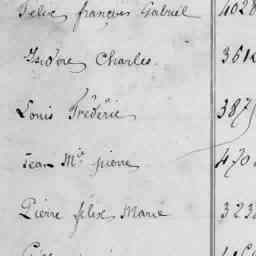 Felix françois Gabriel 4028
Isidore Charles 361
Louis Frédéric 387
Jean Mie pierre 470
Pierre félix Marie 323